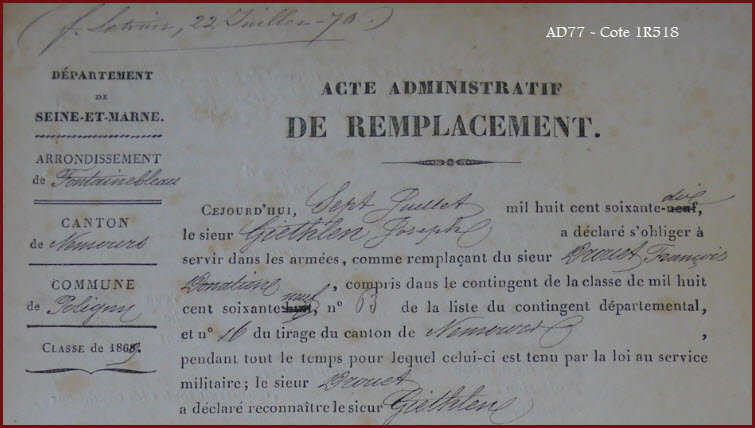 (f. Letroir, 22 Juillet-70.)
AD77 ~ Cote 1R518
DÉPARTEMENT
DE
SEINE-ET-MARNE.
ARRONDISSEMENT
de Fontainebleau
CANTON
de Nemours
COMMUNE
de Poligny
CLASSE DE 1869.
ACTE ADMINISTRATIF
DE REMPLACEMENT.
CEJOURD'HUI, Sept Juillet mil huit cent soixante-neuf, dix
le sieur Giethlen Joseph a déclaré s'obliger à
servir dans les armées, comme remplaçant du sieur Drouet François
Donatien, compris dans le contingent de la classe de mil huit
cent soixante-huit, neuf n° 63 de la liste du contingent départemental,
et n° 16 du tirage du canton de Nemours,
pendant tout le temps pour lequel celui-ci est tenu par la loi au service
militaire; le sieur Drouet
a déclaré reconnaître le sieur Giethlen